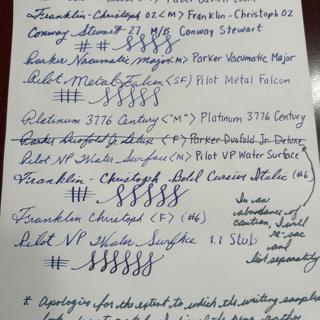 Franklin-Christoph 02 <M> Franklin-Christoph 02
Conway Stewart 27 M/B Conway Stewart
Parker Vacumatic Major <M> Parker Vacumatic Major
Pilot Metal Falcon <SF> Pilot Metal Falcon
Platinum 3776 Century <"M"> Platinum 3776 Century
Parker Duofold Jr. Deluxe <F> Parker Duofold Jr. Deluxe
Pilot VP Water Surface <M> Pilot VP Water Surface
Franklin-Christoph Bold Cursive Italic (#6)
In an
abundance of
caution, I will
re-sac
and
list separately
Franklin Christoph <F> (#6)
Pilot VP Water Surface 1.1 Stub
* Apologies for the extent to which the writing samples